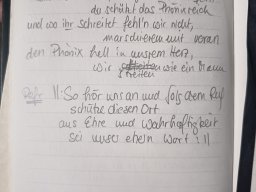 du schützt das Phönixreich
und wo ihr schreitet fehl'n wir nicht,
marschieren mit voran
den Phönix hell in unsrem Herz,
wir wie ein Mann
streiten
Refr. ||: So hör uns an und folg dem Ruf
schütze diesen Ort
aus Ehre und Wahrhaftigkeit
sei unser Wort :||